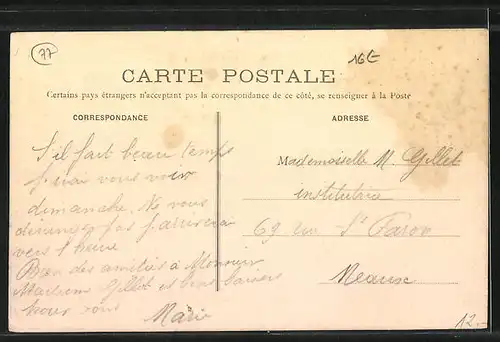 77
16E
CARTE POSTALE
Certains pays étrangers n'acceptant pas la correspondance de ce côté, se renseigner à la Poste
CORRESPONDANCE
ADRESSE
S'il fait beau temps
j'irai vous voir
dimanche. Ne vous
pas j'arriverai
vers 1 heure
Bien des amitiés à Monsieur
Madame Gillet et bons baisers
pour vous
Marie
Mademoiselle M. Gillet
institutrice
69 rue St Faron
Meaux
12.-